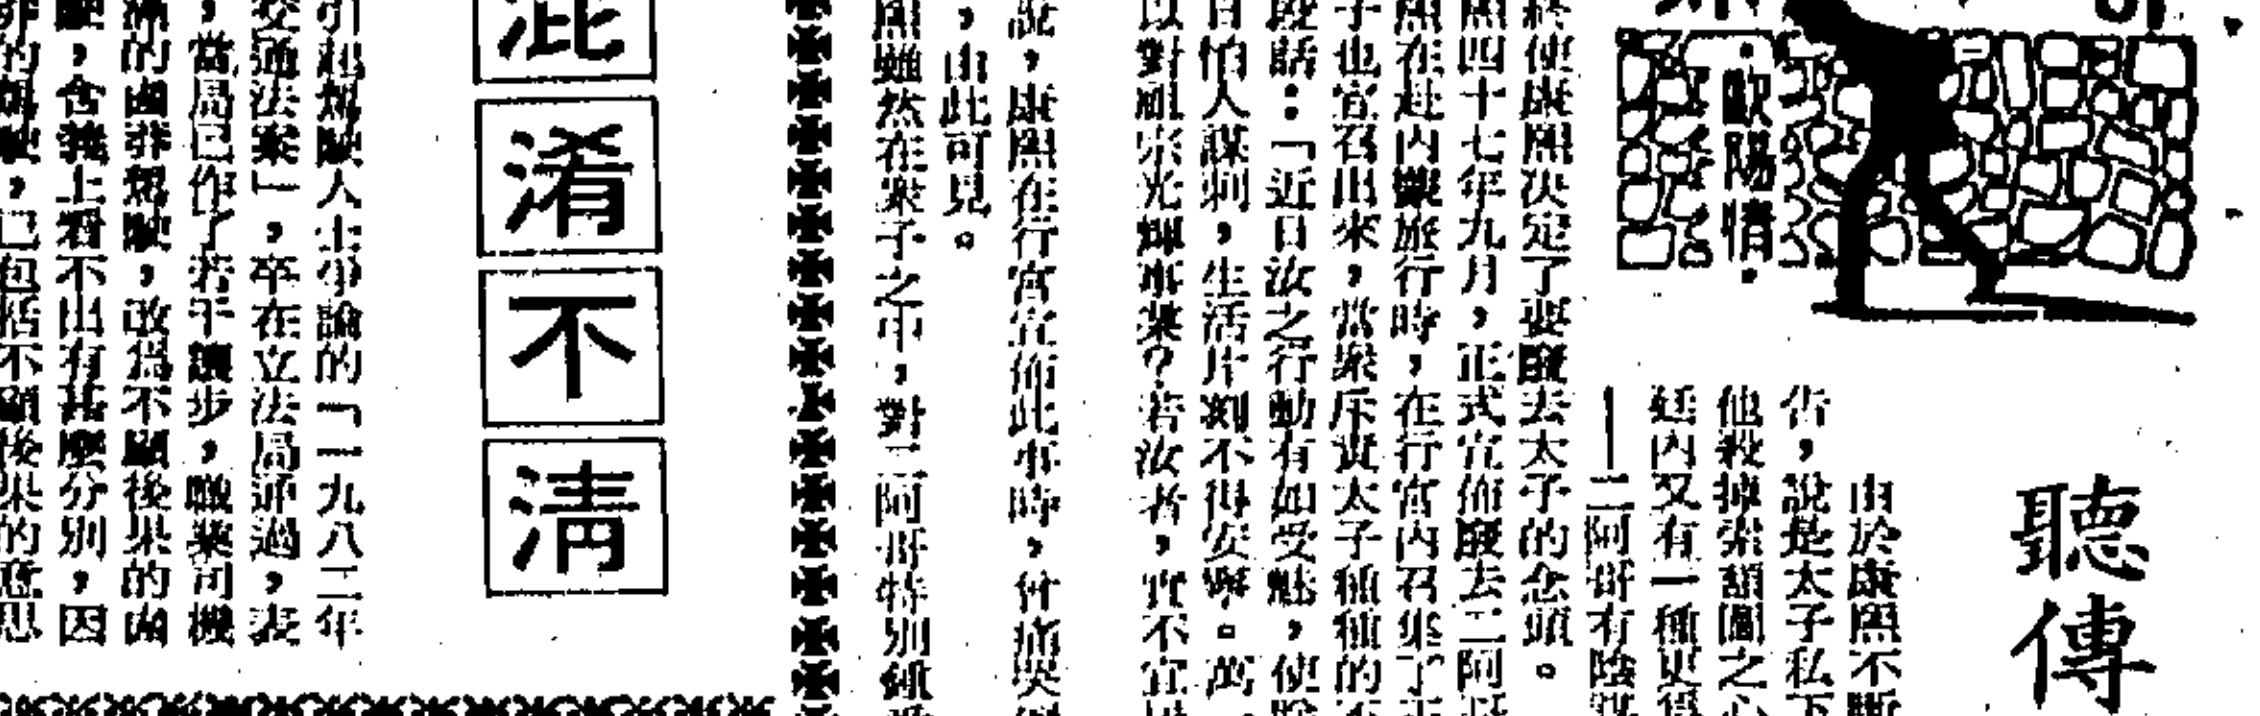 聽傳
·歐陽情·
由於康熙不斷
告，說是太子私下
他殺掉索額圖之心
廷內又有一種更
——二阿哥有陰謀
終使康熙決定了要廢去太子的念頭。
熙四十七年九月，正式宣佈廢去二阿哥
熙在赴內蒙旅行時，在行宮內召集了
子也宣召出來，當衆斥責太子種種的不
段話：「近日汝之行動有如受魅，使
日怕人謀刺，生活片刻不得安寧。萬一
以對祖宗光輝事業？若汝者，實不宜
說，康熙在行宮宣佈此事時，曾痛哭
，由此可見。
熙雖然在衆子之中，對二阿哥特別鍾愛
混淆不清
引起駕駛人士爭論的「一九八二年
交通法案」，卒在立法局通過，表
，當局已作了若干讓步，職業司機
滿的鹵莽駕駛，改爲不顧後果的鹵
駛，含義上看不出有甚麼分別，因
莽的駕駛，已包括不顧後果的意思